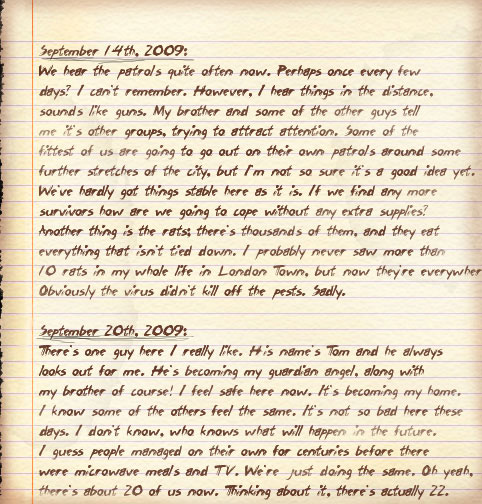 September 14th, 2009:
We hear the patrols quite often now. Perhaps once every few
days? I can't remember. However, I hear things in the distance,
sounds like guns. My brother and some of the other guys tell
me it's other groups, trying to attract attention. Some of the
fittest of us are going to go out on their own patrols around some
further stretches of the city, but I'm not so sure it's a good idea yet.
We've hardly got things stable here as it is. If we find any more
survivors how are we going to cope without any extra supplies?
Another thing is the rats; there's thousands of them, and they eat
everything that isn't tied down. I probably never saw more than
10 rats in my whole life in London Town, but now they're everywher
Obviously the virus didn't kill off the pests. Sadly.
September 20th, 2009:
There's one guy here I really like. His name's Tom and he always
looks out for me. He's becoming my guardian angel, along with
my brother of course! I feel safe here now. It's becoming my home.
I know some of the others feel the same. It's not so bad here these
days. I don't know, who knows what will happen in the future.
I guess people managed on their own for centuries before there
were microwave meals and TV. We're just doing the same. Oh yeah,
there's about 20 of us now. Thinking about it, there's actually 22.